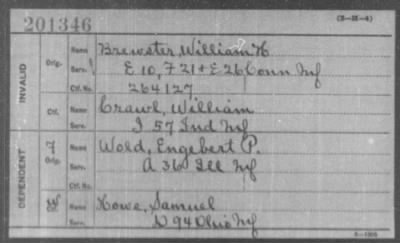 201346
(3-M-4)
INVALID
Orig. Name Brewster, William H
Serv. E 10, F 21 + E 26 Conn Inf
Ctf. No. 264127
Ctf. Name Crawl, William
Serv. I 57 Ind Inf
DEPENDENT
Orig. Name Wold, Engebert P.
Serv. A 36 Ill Inf
Ctf. No.
W Name Howe, Samuel
Serv. D 94 Ohio Inf